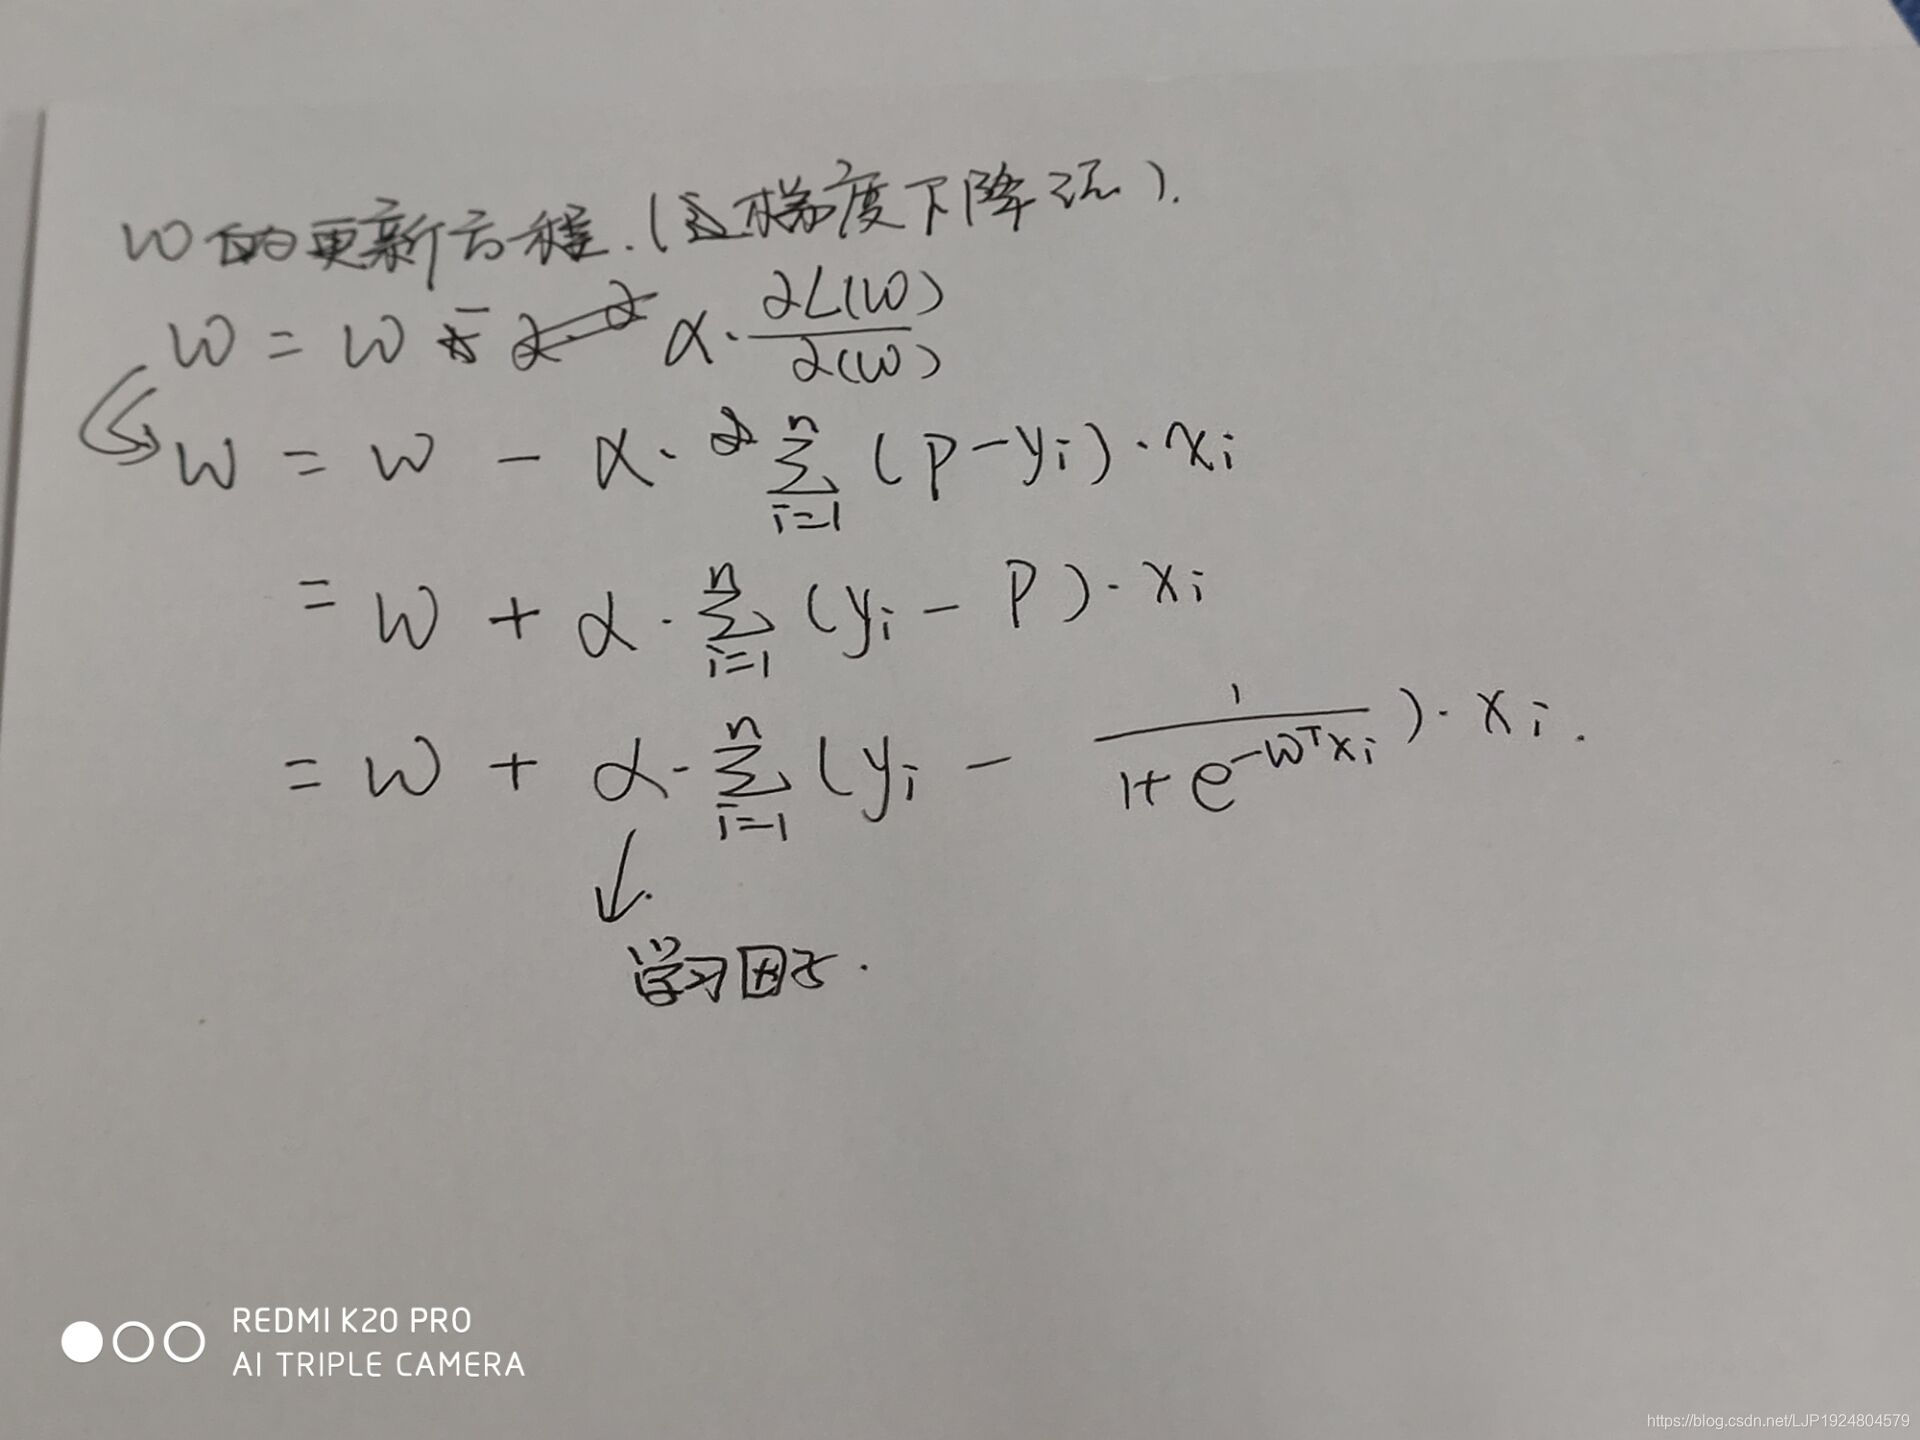 w的更新方程.(梯度下降法).
w = w - α · ∂L(w)/∂(w)
w = w - α · ∑_{i=1}^{n} (p - yi) · xi
= w + α · ∑_{i=1}^{n} (yi - p) · xi
= w + α · ∑_{i=1}^{n} (yi - 1/(1+e^{-w^T xi})) · xi.
↓
学习因子.
REDMI K20 PRO
AI TRIPLE CAMERA
https://blog.csdn.net/LJP1924804579